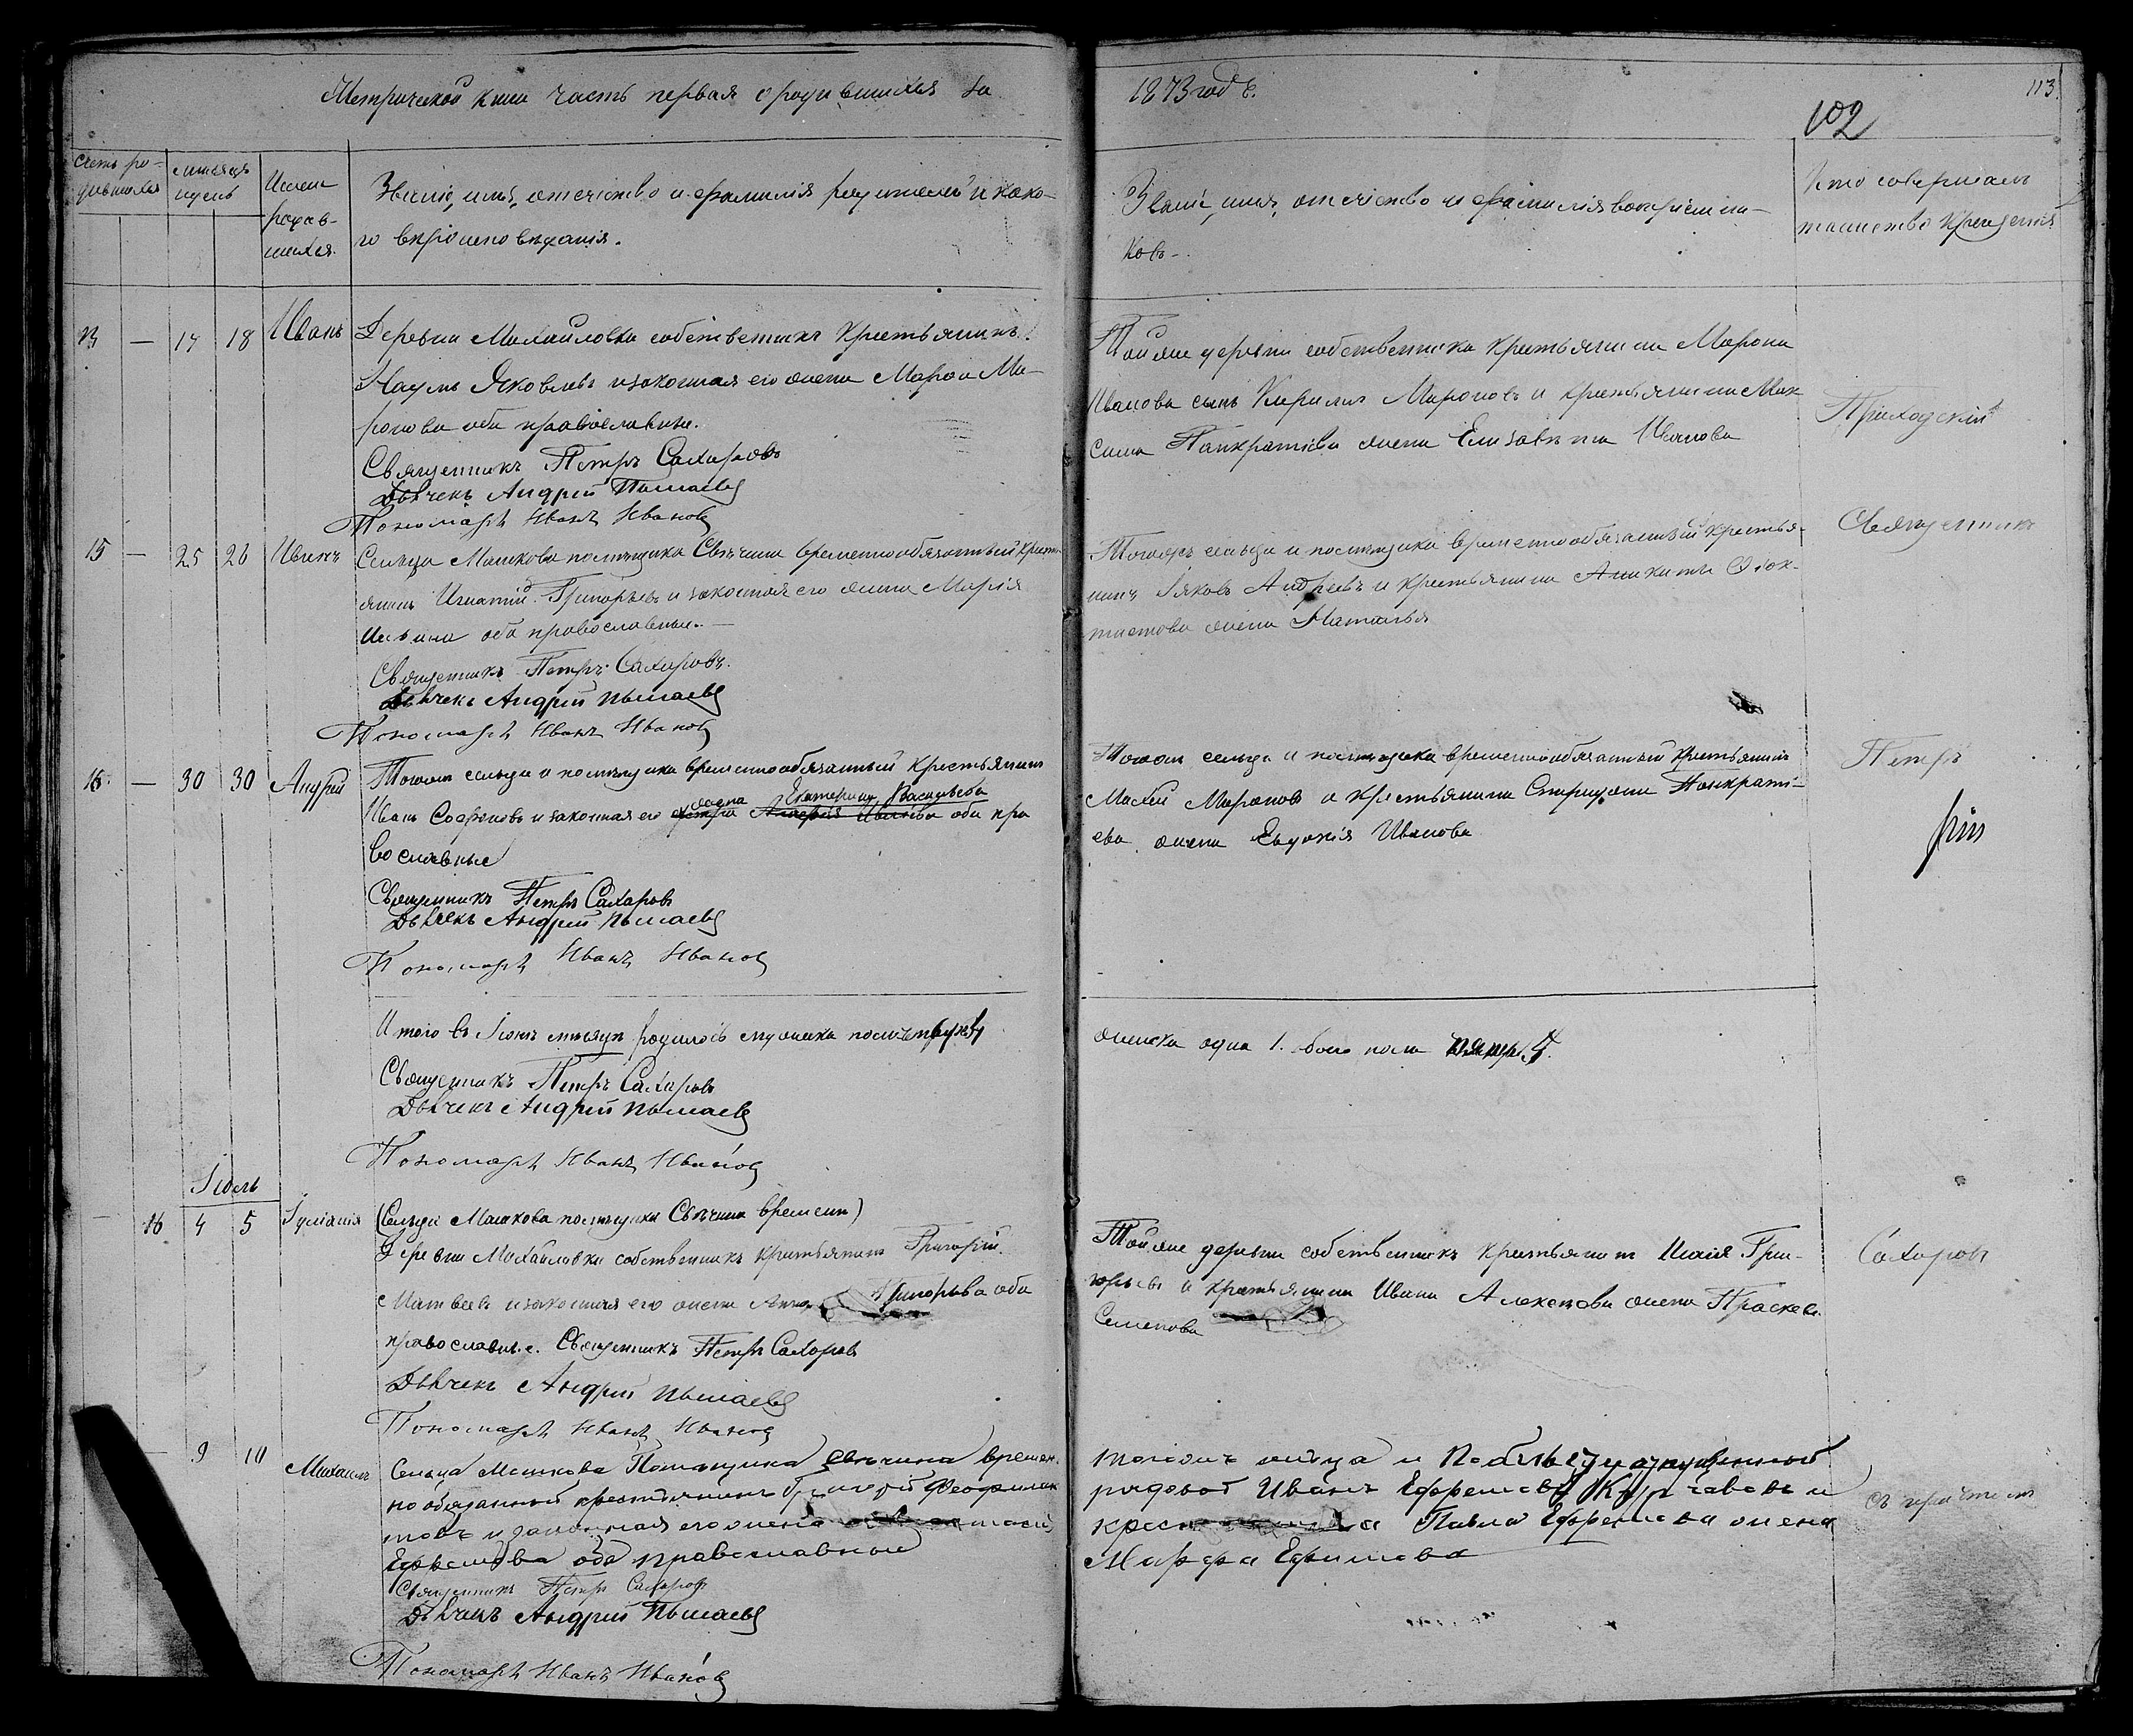 Метрической книги часть первая о родившихся за
1873 годъ.
113.
102
Счетъ ро-
дившихся
мѣсяцъ
и день
Имена
родив-
шихся.
Званіе, имя, отечество и фамилія родителей и како-
го вѣроисповѣданія.
Званіе, имя, отечество и фамилія воспріемни-
ковъ.
Кто совершалъ
таинство крещенія
— 14 18 Иванъ
Деревни Михайловки собственикъ крестьянинъ
Наумъ Яковлевъ и законная его жена Марѳа Ми-
ронова оба православные.
Священникъ Петръ Сахаровъ
Дьячекъ Андрей
Пономарь Иванъ Ивановъ
Той же деревни собственника крестьянина Мирона
Иванова сынъ Кирилъ Мироновъ и крестьянина Мак
сима Панкратіева жена Елизавета Иванова
Приходскій
15 — 25 26 Иванъ
Сельца Машкова помѣщика Свѣчина временнообязанный крест-
янинъ Игнатій Григорьевъ и законная его жена Марія
Ильина оба православные. —
Священникъ Петръ Сахаровъ.
Дьячекъ Андрей
Пономарь Иванъ Ивановъ
Тогожъ сельца и помѣщика временнообязанный крестья-
нинъ Іяковъ Андреевъ и крестьянина Аникиты Ѳеок-
тистова жена Наталья
Священникъ
16. — 30 30 Андрей
Тогожъ сельца и помѣщика временнообязанный крестьянинъ
Екатерина Васильева
Иванъ Софроновъ и законная его жена оба пра
вославные
Священникъ Петръ Сахаровъ
Дьячекъ Андрей
Пономарь Иванъ Ивановъ
Тогожъ сельца и помѣщика временнообязанный крестьянинъ
Мироновъ и крестьянина Спиридона Панкраті-
ева жена Евдокія Иванова
Петръ
Итого въ Іюнѣ мѣсяцѣ родилось мужеска пола
женска одна 1. обоего пола
Священникъ Петръ Сахаровъ
Дьячекъ Андрей
Пономарь Иванъ Ивановъ
Іюль
16 4 5 Іуліанія
(Сельца Машкова помѣщика Свѣчина времени)
Деревни Михайловки собственникъ крестьянинъ Григорій
Матвеевъ и законная его жена Анна Григорьева оба
православные. Священникъ Петръ Сахаровъ
Дьячекъ Андрей
Пономарь Иванъ Ивановъ
Той же деревни собственникъ крестьянинъ Илія Гри-
горьевъ и крестьянина Ивана жена Праскев.
Семенова
Сахаровъ
— 9 10 Михаилъ
Сельца Машкова Помѣщика Свѣчина времен.
но обязанный крестьянинъ Григорій Феофилак
товъ и законная его жена
Ефремова оба православные
Священникъ Петръ Сахаровъ
Дьячекъ Андрей
Пономарь Иванъ Ивановъ
тогожъ сельца и
рядовой Иванъ Ефремовъ и
крес Павла Ефремова жена
Марфа Ефимова
съ причтомъ